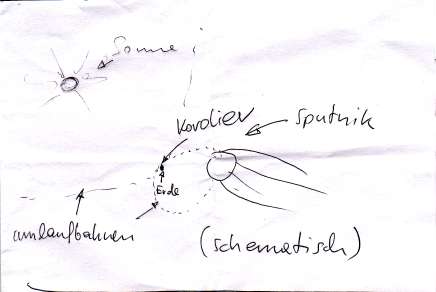 Sonne
Kordier
Sputnik
Erde
umlaufbahnen
(schematisch)